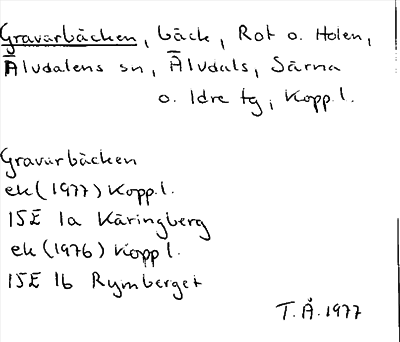 Gravarbäcken, bäck, Rot o. Holen,
Älvdalens sn, Älvdals, Särna
o. Idre tg, Kopp.l.
Gravarbäcken
ek (1977) Kopp.l.
15E 1a Käringberg
ek (1976) Kopp l.
15E 1b Rymberget
T.Å. 1977